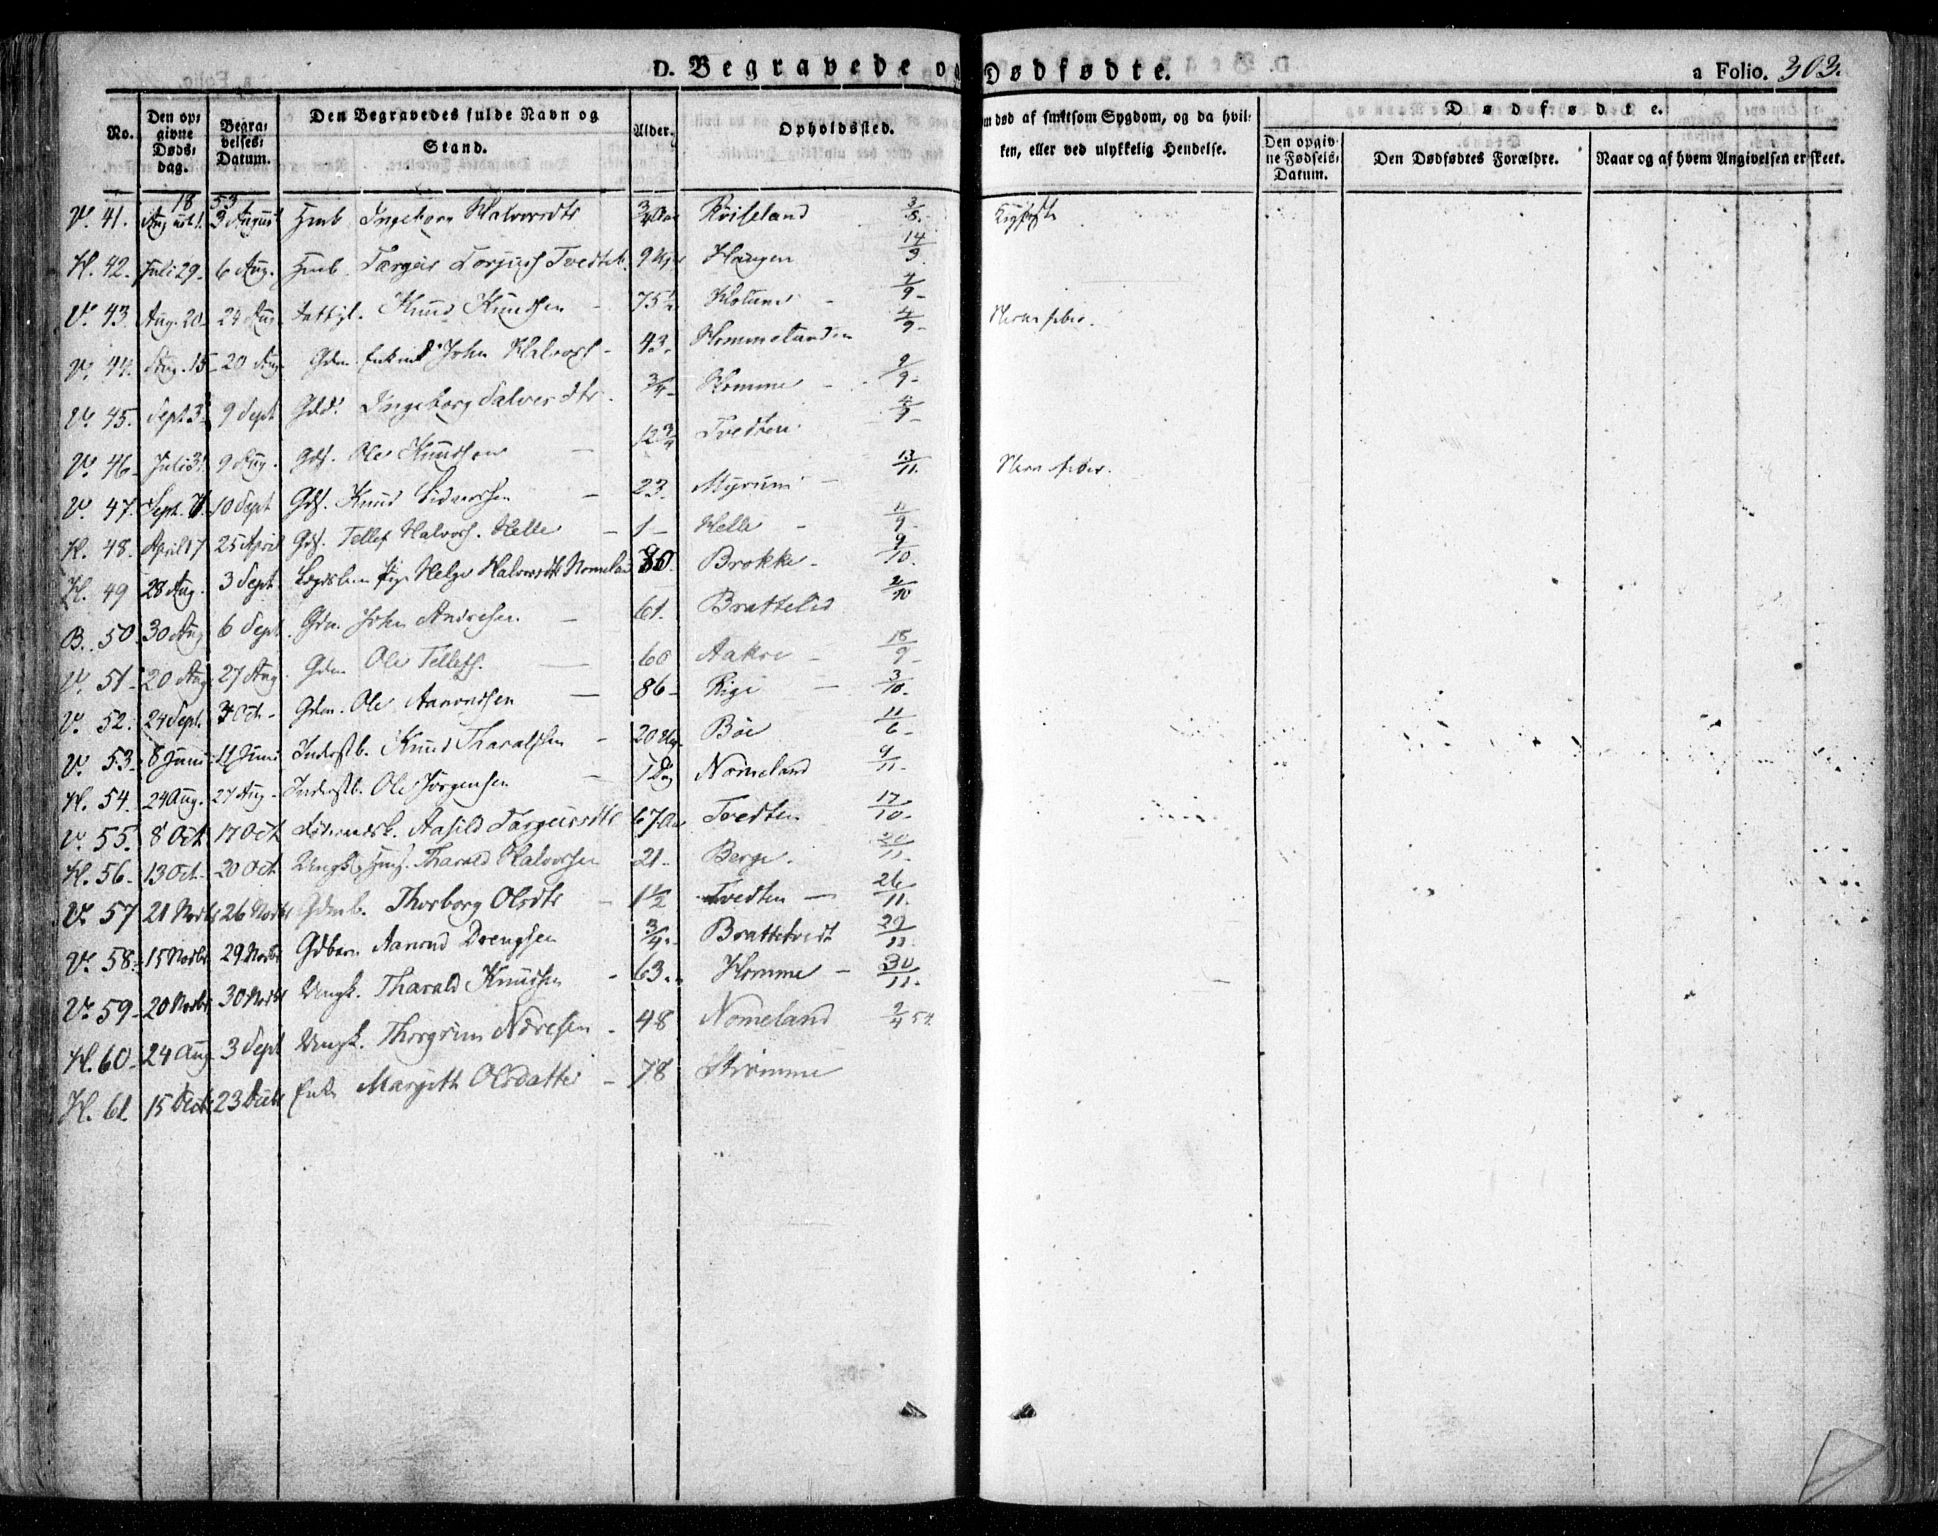 D. Begravede og Dødfødte. a Folio. 303.
No. Den opgivne Dødsdag. Begravelses Datum. Den Begravedes fulde Navn og Stand. Alder. Opholdssted. om død af smitsom Sygdom, og da hvilken, eller ved ulykkelig Hendelse. Dødfødte.
Den opgivne Fødsels Datum. Den Dødfødtes Forældre. Naar og af hvem Angivelsen er skeet.
1853
V. 41. 3 August Ingeborg Halvorsdtr 3/4 Aar Kviseland 3/8.
H. 42. Juli 29. 6 Aug. Targer Torjusd Tvedte 9 Haugen 14/9.
V. 43 Aug. 20 24 Aug. Knud Knudsen 75 1/2 4/9 Nervefeber.
V. 44. Aug. 15 20 Aug. Gdm. Enkem. John Halvors. 43. Hommelanden 4/9
V. 45. Sept. 3 9 Sept Ingeborg Salvesdtr. 3/4 Homme 9/9
V. 46 Juli 31 9 Aug. Gds. Ole Knudsen 12 3/4 Tvedten. 4/9
V. 47. Sept. 10 Sept Gds. Knud 23. Myrum 13/11. Nervefeber.
H. 48. April 17 25 April Gds. Tellef Halvors. Helle 1 Helle 11/9
H. 49 28 Aug. 3 Sept Lægdslem Pige Helge Halvorsdtr Nomeland 80. Brokke 9/10.
B. 50. 30 Aug 6 Sept. Gdm. John Andresen 61. Brattelid 2/10
V. 51 20 Aug 27 Aug Gdm. Ole Tellefs. 60 Aakre 18/9
V. 52. 24 Sept. 3 Oct. Gdm. Ole Aanondsen 86 Rige 3/10.
V. 53. 8 Juni 11 Juni Inderstb. Knud Tharaldsen 20 Böe 11/6
H. 54. 24 Aug. 27 Aug. Inderstb. Ole Jörgensen 1 Dag Nomeland 9/11.
V. 55. 8 Oct 17 Oct Aasild Targeirsdtr 67 Aar Tvedten 17/10.
H. 56. 13 Oct. 20 Oct. Ungk. Tharald Halvorsen 21. Berge. 20/11.
V. 57 21 Novbr 26 Novbr Gdmb. Thorborg Olsdtr 1 1/2 Tvedten 26/11.
V. 58. 15 Novbr 29 Novbr Gdbarn Aanond Drengsen 3/4. Brattetvedt 29/11.
V. 59 20 Novbr 30 Novbr Ungk. Tharald Knudsen 63. Homme 30/11.
H. 60. 24 Aug 3 Sept Ungk. Thorgrim 48 Nomeland 2/4 54.
H. 61. 15 Decbr 23 Decbr Enke Margith Olsdatter 78 Strömme